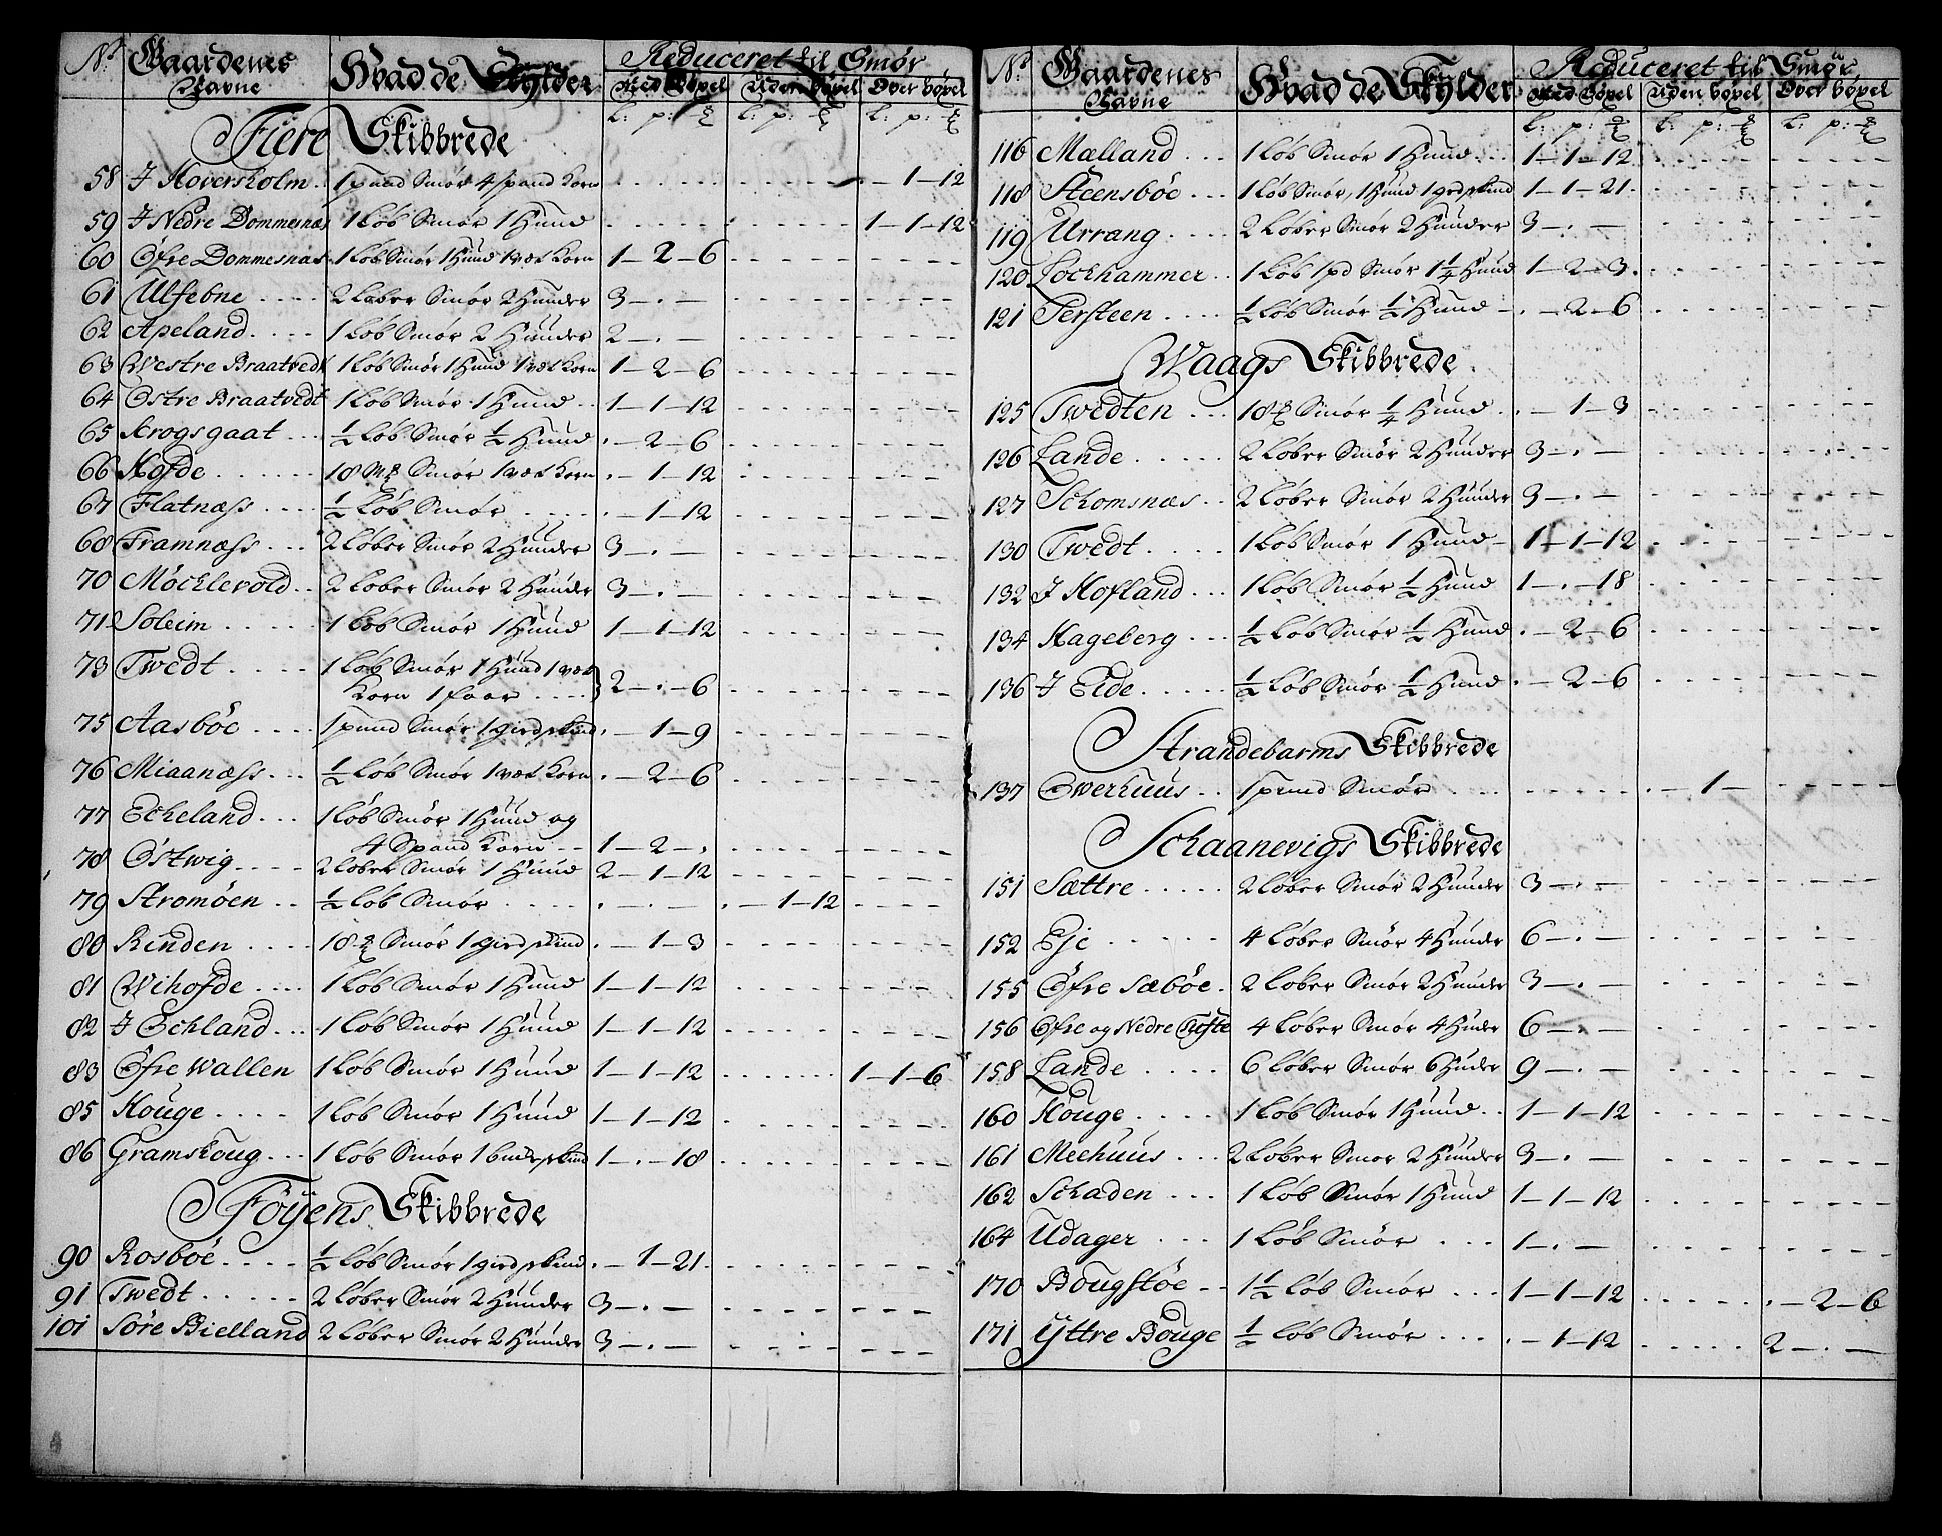 No Gaardenes Hvad de Skylder Reduceret til Smør
Navne Med Bøpel Uden bøpel Over bøpel
l: p: l: p: l: p:
Fiere Skibbrede
58 J Hoversholm 1 pund Smør 4 spand Korn . - 1 - 12
59 J Nedre Dommesnæs 1 Løb Smør 1 Huud 1 - 1 - 12
60 Øfre Dommesnæs 1 Løb Smør 1 Huud 1 væt Korn 1 - 2 - 6
61 Ulfebne 2 Løber Smør 2 Huuder 3 - . -
62 Apeland 1 Løb Smør 2 Huuder 2 - . -
63 Westre Braatvedt 1 Løb Smør 1 Huud 1 væt Korn 1 - 2 - 6
64 Østre Braatvedt 1 Løb Smør 1 Huud 1 - 1 - 12
65 Krogsgaat ½ Løb Smør ½ Huud . - 2 - 6
66 Hofde 18 Mk Smør 1 væt Korn . - 1 - 12
67 Flatnæss ½ Løb Smør . - 1 - 12
68 Framnæss 2 Løber Smør 2 Huuder 3 - . -
70 Møcklevold 2 Løber Smør 2 Huuder 3 - . -
71 Soleim 1 Løb Smør 1 Huud 1 - 1 - 12
73 Twedt 1 Løb Smør 1 Huud 1 væt
Korn 1 faar 2 - . - 6
75 Aasbøe 1 pund Smør 1 giedskind . - 1 - 9
76 Miaanæss ½ Løb Smør 1 væt Korn . - 2 - 6
77 Echeland 1 Løb Smør 1 Huud og
4 Spand Korn 1 - 2 - .
78 Østwig 2 Løber Smør 1 Huud 2 - 1 - 12
79 Strømøen ½ Løb Smør . - . - . - 1 - 12
80 Rinden 18 Smør 1 giedskind . - 1 - 3
81 Wihofde 1 Løb Smør 1 Huud 1 - 1 - 12
82 J Echland 1 Løb Smør 1 Huud 1 - 1 - 12
83 Øfre Wallen 1 Løb Smør 1 Huud 1 - 1 - 12 1 - 1 - 6
85 Houge 1 Løb Smør 1 Huud 1 - 1 - 12
86 Gramshoug 1 Løb Smør 1 bukskind 1 - . - 18
Føyens Skibbrede
90 Rosbøe ½ Løb Smør 1 giedskind . - 1 - 21
91 Twedt 2 Løber Smør 2 Huuder 3 - . -
101 Søre Bielland 2 Løber Smør 2 Huuder 3 - . -
No Gaardenes Hvad de Skylder Reduceret til Smør
Navne Med Bøpel Uden bøpel Over bøpel
l: p: l: p: l: p:
116 Mælland 1 Løb Smør 1 Huud 1 - 1 - 12
118 Steensbøe 1 Løb Smør, 1 Huud 1 gedskind 1 - 1 - 21
119 Urrang 2 Løber Smør 2 Huuder 3 - . -
120 Lockhammer 1 Løb 1 pd Smør 1¼ Huud 1 - 2 - 3
121 Tersteen ½ Løb Smør ½ Huud . - 2 - 6
Waags Skibbrede
125 Twedten 18 Smør ¼ Huud . - 1 - 3
126 Lande 2 Løber Smør 2 Huuder 3 - . -
127 Schomsnæs 2 Løber Smør 2 Huuder 3 - . -
130 Twedt 1 Løb Smør 1 Huud 1 - 1 - 12
132 J Hofland 1 Løb Smør ½ Huud 1 - . - 18
134 Hageberg ½ Løb Smør ½ Huud . - 2 - 6
136 J Eide ½ Løb Smør ½ Huud . - 2 - 6
Strandebarms Skibbrede
137 Owerhuus 1 pund Smør . - 1 -
Schaanevigs Skibbrede
151 Sættre 2 Løber Smør 2 Huuder 3 - . -
152 Eje 4 Løber Smør 4 Huuder 6 - . -
155 Øfre Sæbøe 2 Løber Smør 2 Huuder 3 - . -
156 Øfre og Nedre Tofte 4 Løber Smør 4 Huder 6 - . -
158 Lande 6 Løber Smør 6 Huder 9 - . -
160 Houge 1 Løb Smør 1 Huud 1 - 1 - 12
161 Meehuus 2 Løber Smør 2 Huuder 3 - . -
162 Schaden 1 Løb Smør 1 Huud 1 - 1 - 12
164 Udager 1 Løb Smør 1 - . -
170 Bougstøe 1½ Løb Smør 1 - 1 - 12 . - 2 - 6
171 Yttre Bouge ½ Løb Smør . - 1 - 12 2 - . -